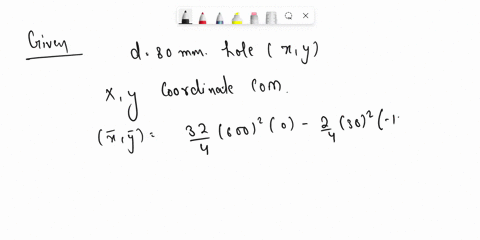 Given
d. 80 mm. hole (x,y)
x, y coordinate COM.
(x̄,ȳ) = 32/4 (600)² (0) - 2/4 (30)² (-1